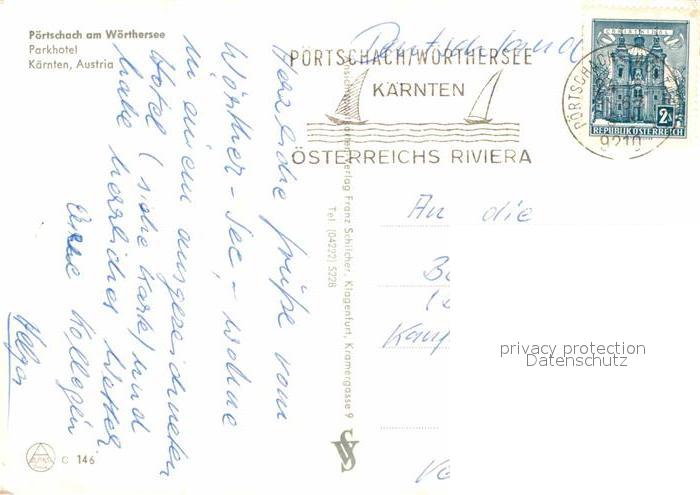 Pörtschach am Wörthersee
Parkhotel
Kärnten, Austria
Deutschland
PÖRTSCHACH/WÖRTHERSEE
KÄRNTEN
ÖSTERREICHS RIVIERA
CHRISTKINDL
2S
REPUBLIK ÖSTERREICH
PÖRTSCHACH
9210
Herzliche Grüße vom
Wörther-See, - wohne
in einem ausgezeichneten
Hotel (siehe Karte) und
habe herrliches Wetter
Eure Kollegin
Helga
Ansichtskartenverlag Franz Schilcher, Klagenfurt, Kramergasse 9
Tel. (04222) 5228
An die
Kauf
privacy protection
Datenschutz
C 146